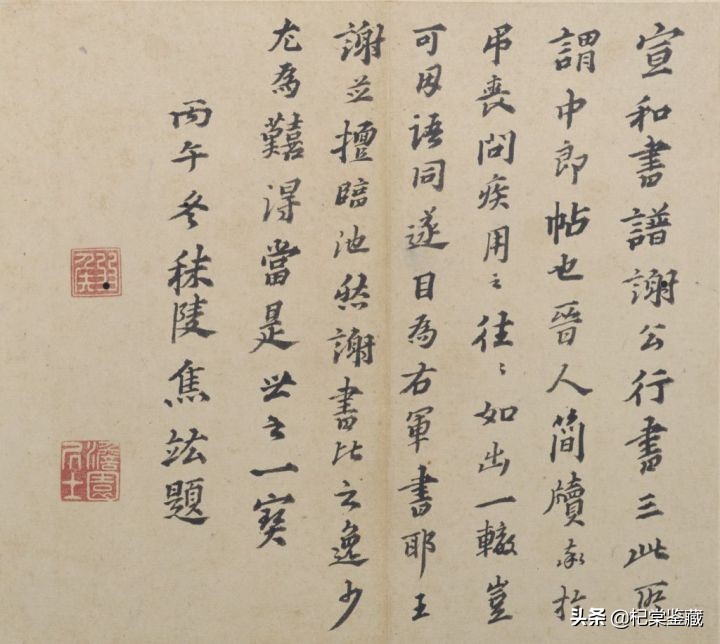 宣和書譜謝公行書三此所
謂中郎帖也晉人簡牘於
弔喪問疾用之往〻如出一轍豈
可因語同遂目為右軍書耶王
謝並擅臨池然謝書比之逸少
尤為難得當是世之一寶
丙午冬秣陵焦竑題
澹園居士
头条 @杞棠鉴藏